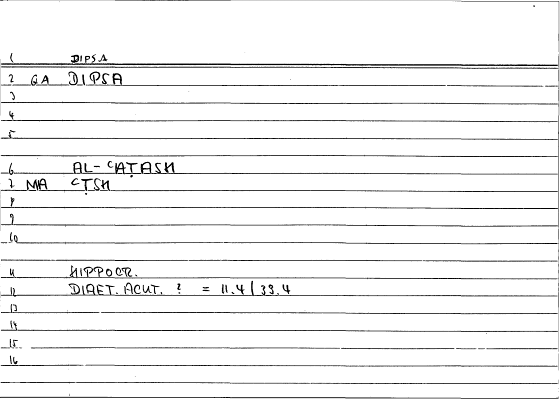 1 DIPSA
2 GA DIPSA
3
4
5
6 AL-ʿAṬASH
7 MA ʿṬSH
8
9
10
11 HIPPOCR.
12 DIAET. ACUT. ? = 11.4 / 33.4
13
14
15
16